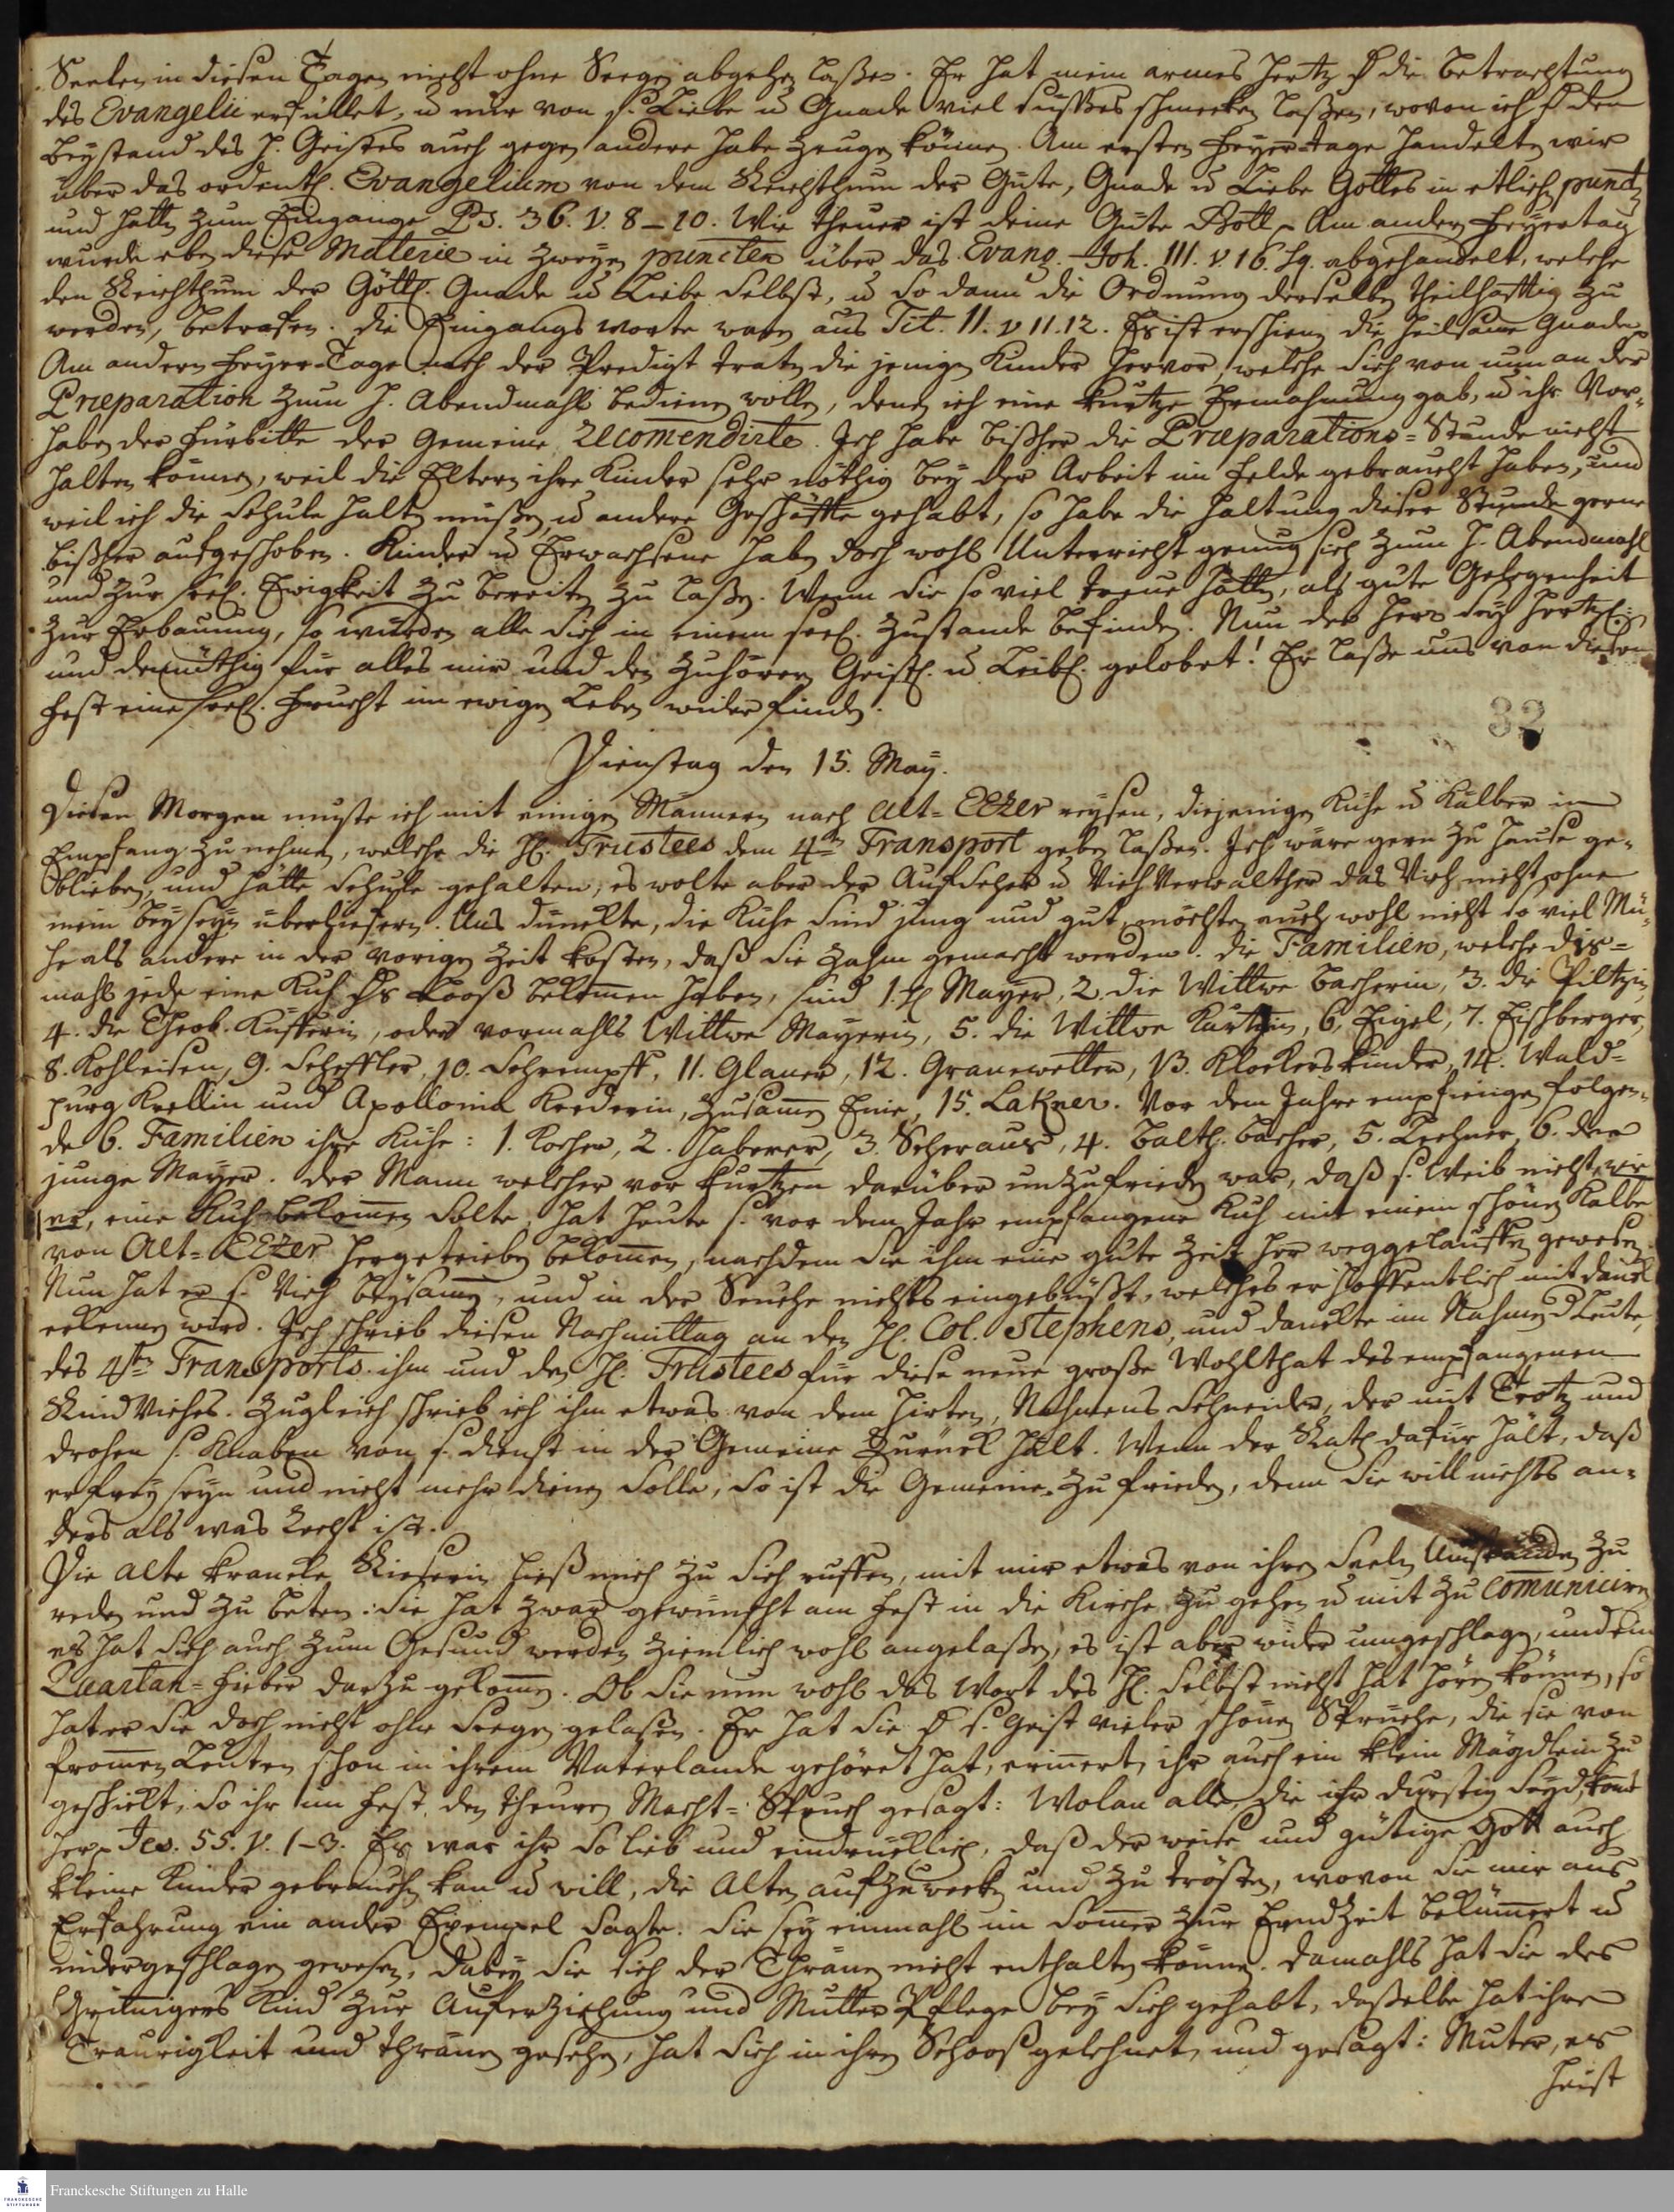 Seelen in diesen Tagen nicht ohne Seegen abgehen laßen. Er hat mein armes Hertz d die Betrachtung
des Evangelii erfüllet, u mir von s. Liebe u Gnade viel süßes schmecken laßen, wovon ich d den
Beystand des H. Geistes auch gegen andere habe zeugen können. Am ersten Feyer-Tage handelten wir
über das ordentl. Evangelium von dem Reichthum der Güte, Gnade u Liebe Gottes in etlichen punctn
und hatten zum Eingange Ps. 36. V. 8-10. Wie theuer ist deine Güte Gott. Am andern Feyertag
wurde eben diese Materie in zweyen puncten über das Evang. Joh. III. v. 16. sq. abgehandelt, welche
den Reichthum der Göttl. Gnade u Liebe selbst, u so dann die Ordnung derselben theilhafftig zu
werden, betrafen. Die Eingangs worte waren aus Tit. II. v 11.12. Es ist erschienen die heilsame Gnade
Am andern Feyer-Tage nach der Predigt traten die jenigen Kinder hervor, welche sich von nun an der
Præparation zum H. Abendmahl bedienen wollen, denen ich eine kurtze Ermahnung gab, u ihr Vor-
haben der Fürbitte der Gemeine recomendirte. Ich habe bißher die Præparations-Stunde nicht
halten können, weil die Eltern ihre Kinder sehr nöthig bey der Arbeit im Felde gebraucht haben, und
weil ich die Schule halten müßen u andere Geschäffte gehabt, so habe die Haltung dieser Stunde gerne
bißher aufgeschoben. Kinder u Erwachsene haben doch wohl Unterricht genug sich zum H. Abendmahl
und zur seel. Ewigkeit zu bereiten zu laßen. Wenn sie so viel Treue hätten, als gute Gelegenheit
zur Erbauung, so würden alle sich in einem seel. Zustande befinden. Nun der Herr sey hertzl.
und demüthig für alles mir und den Zuhörern Geistl. u Leibl. gelobet! Er laße uns von diesem
Fest eine seel. Frucht im ewigen Leben wieder finden.
32
Dienstag den 15. May.
Diesen Morgen muste ich mit einigen Männern nach Alt-Ebezer reysen, diejenigen Kühe u Kälber in
Empfang zu nehmen, welche die H. Trustees dem 4ten Transport geben laßen. Ich wäre gern zu Hause ge-
blieben, und hätte Schule gehalten, es wolte aber der Aufseher u Viehverwalther das Vieh nicht ohne
mein Beyseyn überliefern. Uns dünckte, die Kühe sind jung und gut, möchten auch wohl nicht so viel Mü-
he als andere in der vorigen Zeit kosten, daß sie zahm gemacht werden. Die Familien, welche dis-
mahl jede eine Kuh ds Looß bekomen haben, sind 1. H Mayer, 2. die Wittwe Bacherin, 3. die Piltzin,
4. die Theob. Kiefferin, oder vormahls Wittwe Mayerin, 5. die Wittwe Kurtzin, 6. Eigel, 7. Eischberger,
8. Kohleisen, 9. Scheffler, 10. Schrempff, 11. Glaner, 12. Granewetter, 13. Klockers Kinder, 14. Wald-
purg Krellin und Apollonia Krederin, zusamen Eine, 15. Lakner. Vor dem Jahre empfiengen folgen-
de 6. Familien ihre Kühe: 1. Kocher, 2. Haberer, 3. Scheraus, 4. Balth. Bacher, 5. Lechner, 6. der
junge Mayer. Der Mann welcher vor kurtzen darüber unzufrieden war, daß s. Weib nicht,
eine Kuh bekomen solte, hat heute s. vor dem Jahr empfangene Kuh mit einem schönen Kalbe
von Alt-Ebezer hergetrieben bekomen, nachdem sie ihm eine gute Zeit her weggelauffen gewesen.
Nun hat er s. Vieh beysamen, und in der Seuche nichts eingebüßt, welches er hoffentlich mit danck
erkennen wird. Ich schrieb diesen Nachmittag an den H. Col. Stephens, und danckte im Nahmen d Leute,
des 4ten Transports ihm und den H. Trustees für diese neue große Wohlthat des empfangenen
Rind Viehes. Zugleich schrieb ich ihm etwas von dem Hirten, Nahmens Schneider, der mit Trotz und
drohen s. Knaben von s. Dienst in der Gemeine zurück hält. Wenn der Rath dafür hält, daß
er frey seyn und nicht mehr dienen solle, so ist die Gemeine zu frieden, denn sie will nichts an-
ders als was Recht ist.
Die alte krancke Rieserin hieß mich zu sich ruffen, mit mir etwas von ihren Seelen Umständen zu
reden und zu beten. Sie hat zwar gewünscht am Fest in die Kirche zu gehen u mit zu comuniciren
es hat sich auch zum Gesund werden ziemlich wohl angelaßen, es ist aber wieder umgeschlagen, und ein
Quartan-Fieber dazu gekomen. Ob sie nun wohl das Wort des H. selbst nicht hat hören können, so
hat er sie doch nicht ohne Seegen gelaßen. Er hat sie d s. Geist vieler schönen Sprüche, die sie von
fromen Leuten schon in ihrem Vaterlande gehöret hat, erinnert, ihr auch ein klein Mägdlein zu
geschickt, so ihr im Fest den theuren Macht-Spruch gesagt: Wolan alle die ihr durstig seyd, komt
her Jes. 55. V. 1-3. Es war ihr so lieb und eindrücklich, daß der weise und gütige Gott auch
kleine Kinder gebrauchen kan u will, die Alten aufzuwecken und zu trösten, wovon sie mir aus
Erfahrung ein ander Exempel sagte. Sie sey einmahl im Somer zur Erndzeit bekümert u
nidergeschlagen gewesen, dabey sie sich der Thränen nicht enthalten können. Damahls hat sie des
Kind zur Auferziehung und Mutter Pflege bey sich gehabt, daßelbe hat ihre
Traurigkeit und Thränen gesehen, hat sich in ihren Schooß gelehnet, und gesagt: Muter, es
heist
Franckesche Stiftungen zu Halle